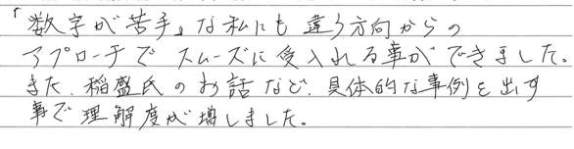 「数字が苦手」な私にも違う方向からの
アプローチでスムーズに受入れる事ができました。
また、稲盛氏のお話など、具体的な事例を出す
事で理解度が増しました。